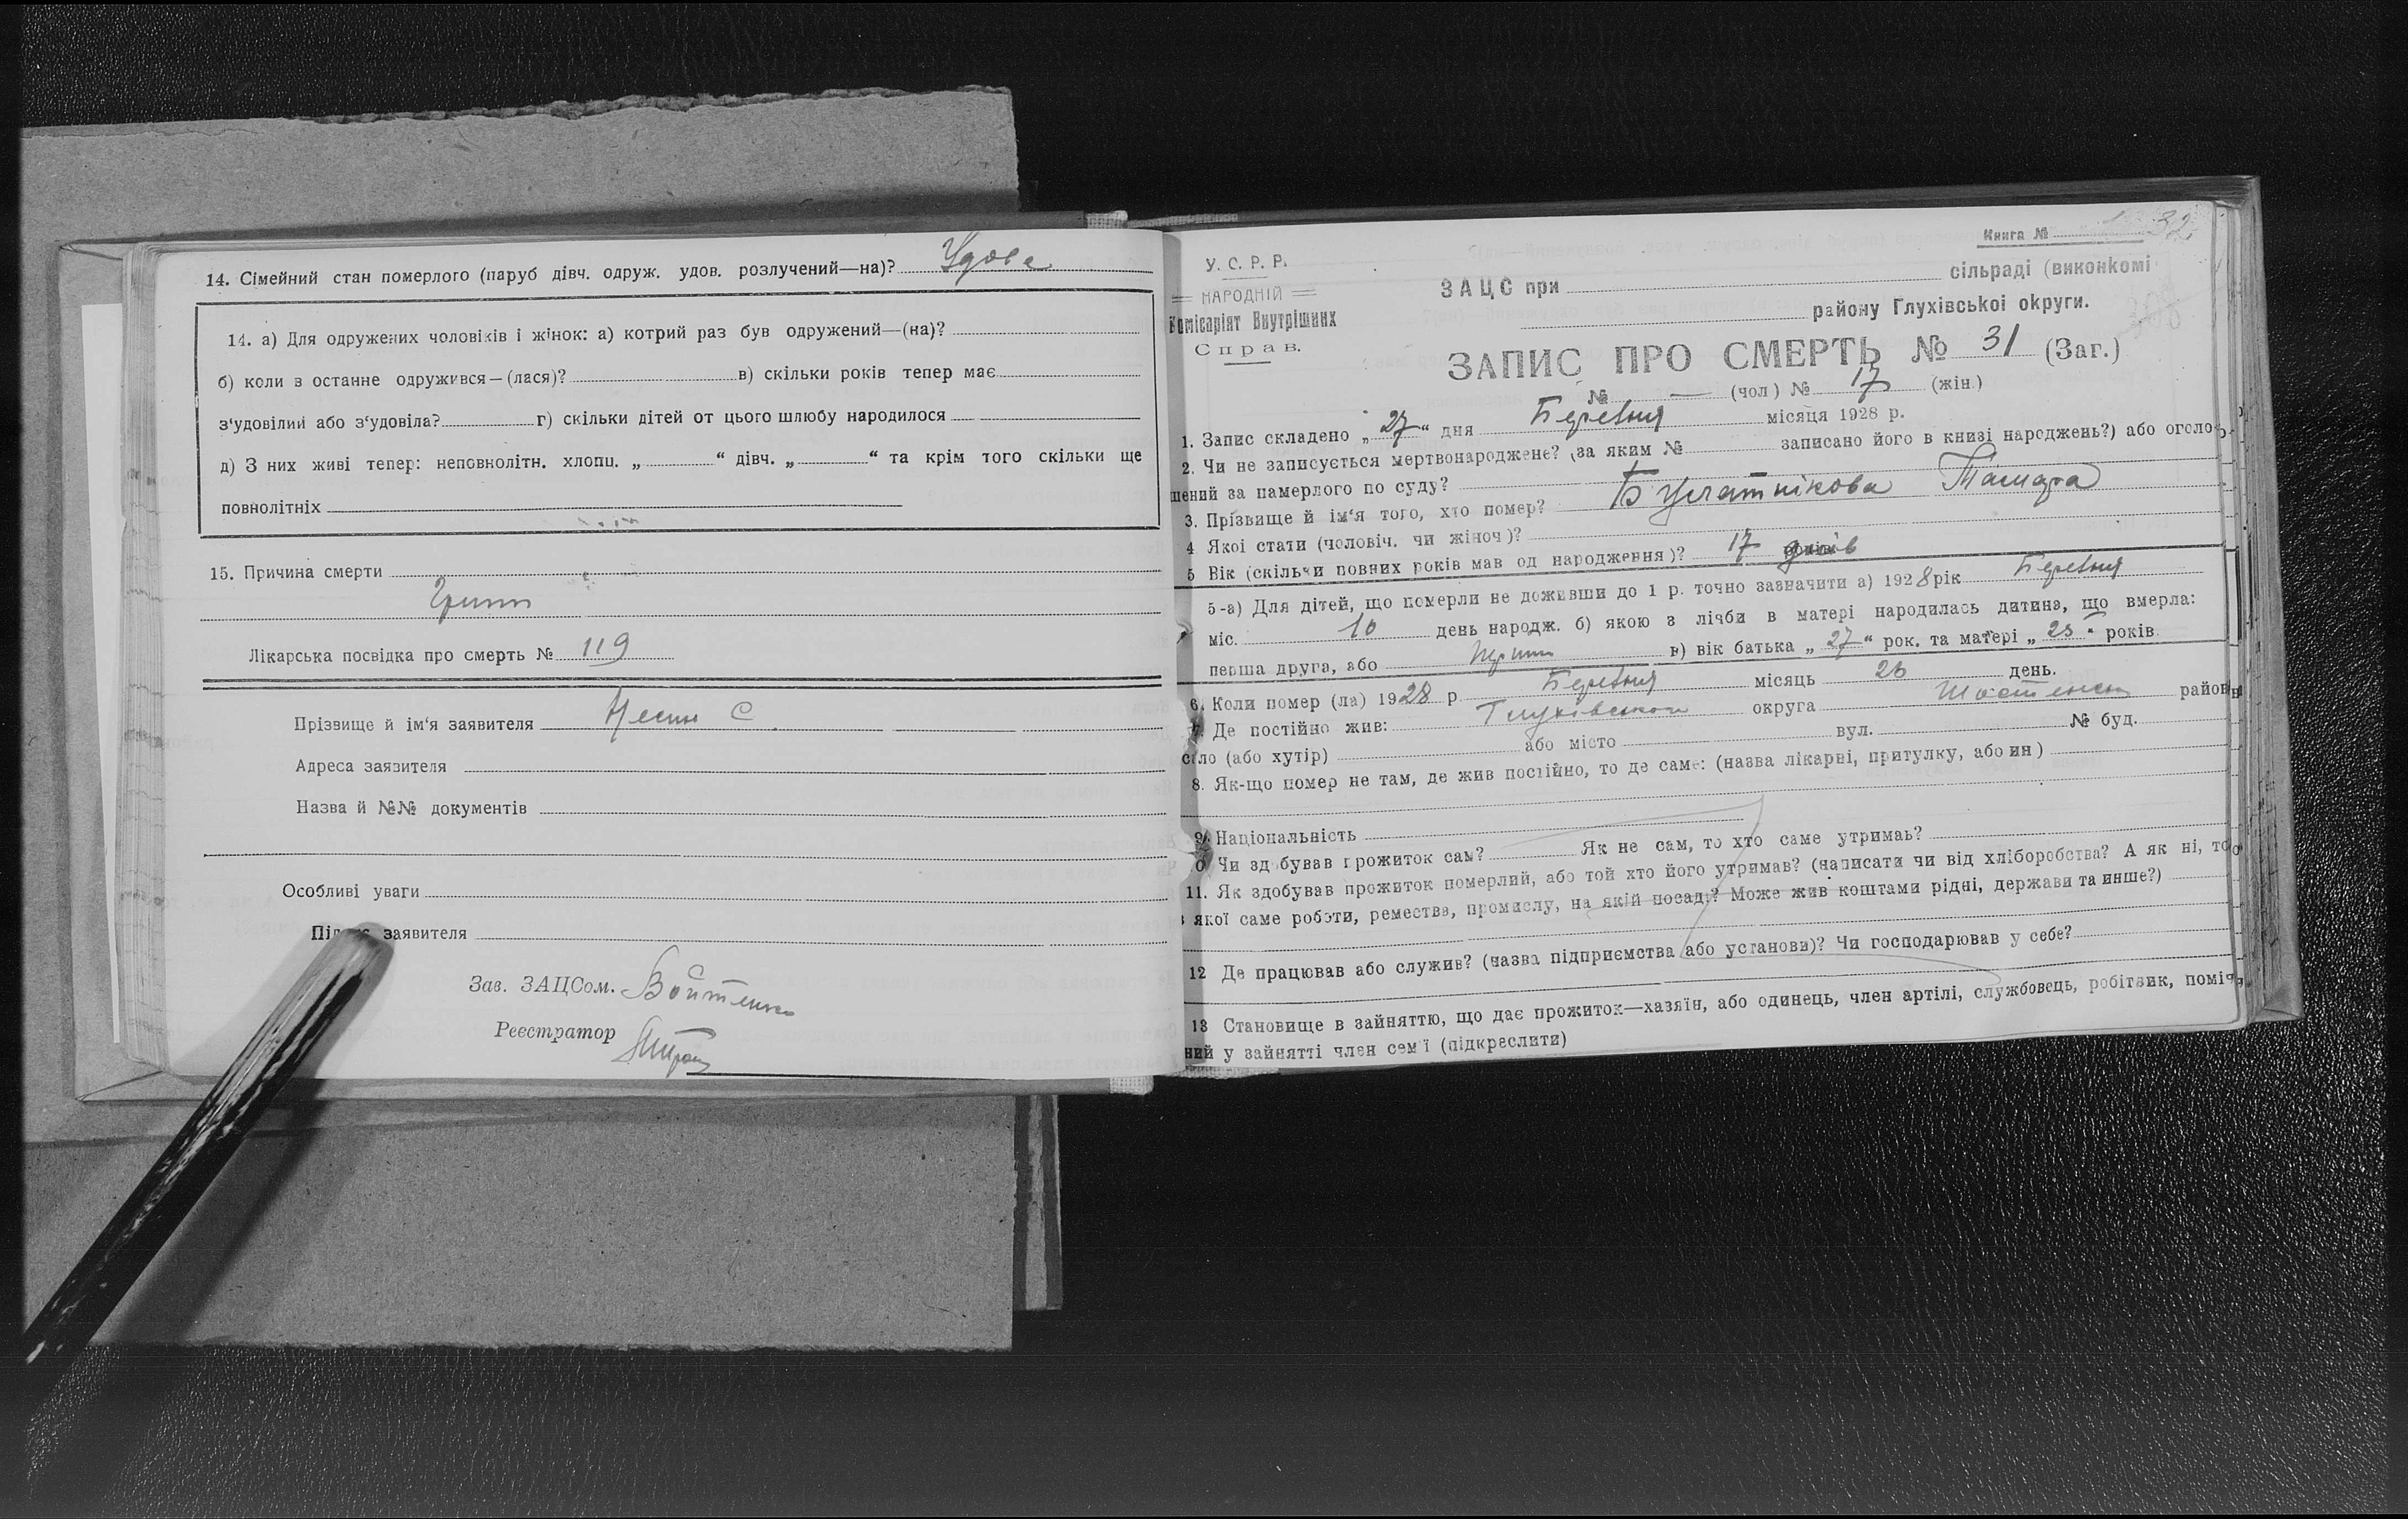 14. Сімейний стан померлого (паруб дівч. одруж. удов. розлучений—на)? Удова
14. а) Для одружених чоловіків і жінок: а) котрий раз був одружений—(на)?
б) коли в останнє одружився—(лася)? в) скільки років тепер має
з‘удовілий або з‘удовіла? г) скільки дітей от цього шлюбу народилося
д) З них живі тепер: неповнолітн. хлопц. „ “ дівч. „ “ та крім того скільки ще
повнолітніх
15. Причина смерти
Грипп
Лікарська посвідка про смерть № 119
Прізвище й ім‘я заявителя С
Адреса заявителя
Назва й №№ документів
Особливі уваги
заявителя
Зав. ЗАЦСом. Войтенко
Реєстратор
Книга № 32
У. С. Р. Р.
НАРОДНІЙ
Комісаріят Внутрішних
Справ.
ЗАЦС при сільраді (виконкомі
району Глухівської округи.
ЗАПИС ПРО СМЕРТЬ № 31 (Заг.)
№ — (чол) № 17 (жін.)
1. Запис складено „27“ дня Березня місяця 1928 р.
2. Чи не записується мертвонароджене? (за яким № записано його в книзі народжень?) або оголо-
шений за памерлого по суду?
3. Прізвище й ім‘я того, хто помер? Булатнікова Тамара
4 Якої стати (чоловіч. чи жіноч)?
5 Вік (скільки повних років мав од народження)? 17 днів
5-а) Для дітей, що померли не доживши до 1 р. точно зазначити а) 1928 рік Березня
міс. 10 день народж. б) якою з лічби в матері народилась дитина, що вмерла:
перша друга, або в) вік батька „27“ рок. та матері „23“ років
6. Коли помер (ла) 1928 р. Березня місяць 26 день.
7. Де постійно жив: Глухівської округа Шостенськ район
село (або хутір) або місто вул. № буд.
8. Як-що помер не там, де жив постійно, то де саме: (назва лікарні, притулку, або ин)
9. Національність
10. Чи здобував прожиток сам? Як не сам, то хто саме утримаь?
11. Як здобував прожиток померлий, або той хто його утримав? (написати чи від хліборобства? А як ні, то
з якої саме роботи, ремества, промислу, на якій посаді? Може жив коштами рідні, держави та инше?)
12 Де працював або служив? (назва підприємства або установи)? Чи господарював у себе?
13 Становище в зайняттю, що дає прожиток—хазяїн, або одинець, член артілі, службовець, робітник, поміч-
ний у зайнятті член сем‘ї (підкреслити)